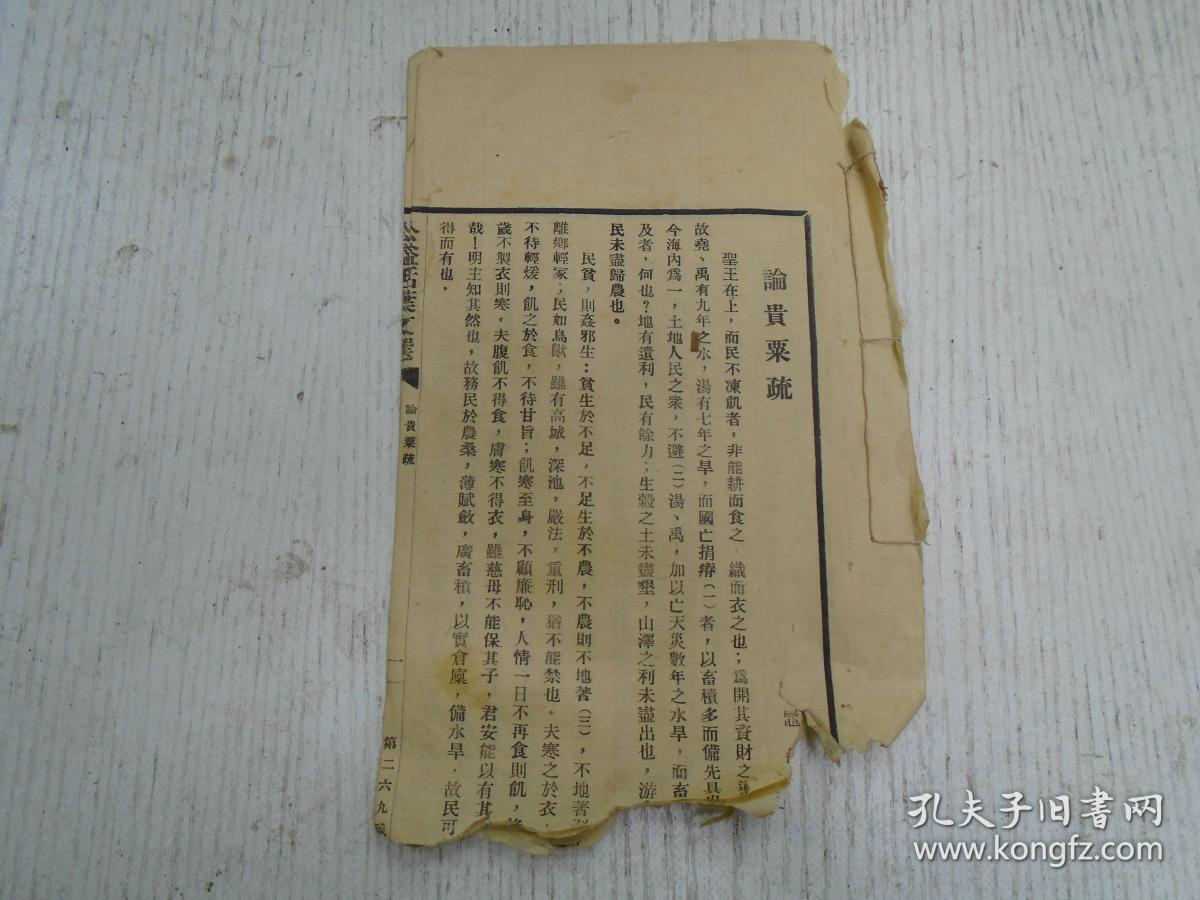 論貴粟疏
聖王在上，而民不凍飢者，非能耕而食之，織而衣之也；爲開其資財之
故堯、禹有九年之水，湯有七年之旱，而國亡捐瘠（一）者，以畜積多而備先具
今海內爲一，土地人民之衆，不避（二）湯、禹，加以亡天災數年之水旱，而畜
及者，何也？地有遺利，民有餘力；生穀之土未盡墾，山澤之利未盡出也，游
民未盡歸農也。
民貧，則姦邪生：貧生於不足，不足生於不農，不農則不地著（三），不地著
離鄉輕家；民如鳥獸，雖有高城，深池，嚴法，重刑，猶不能禁也。夫寒之於衣，
不待輕煖，飢之於食，不待甘旨；飢寒至身，不顧廉恥，人情一日不再食則飢，
歲不製衣則寒。夫腹飢不得食，膚寒不得衣，雖慈母不能保其子，君安能以有其
哉！明主知其然也，故務民於農桑，薄賦斂，廣畜積，以實倉廩，備水旱，故民可
得而有也。
活葉文選
論貴粟疏
一
第二六九號
孔夫子旧书网
www.kongfz.com